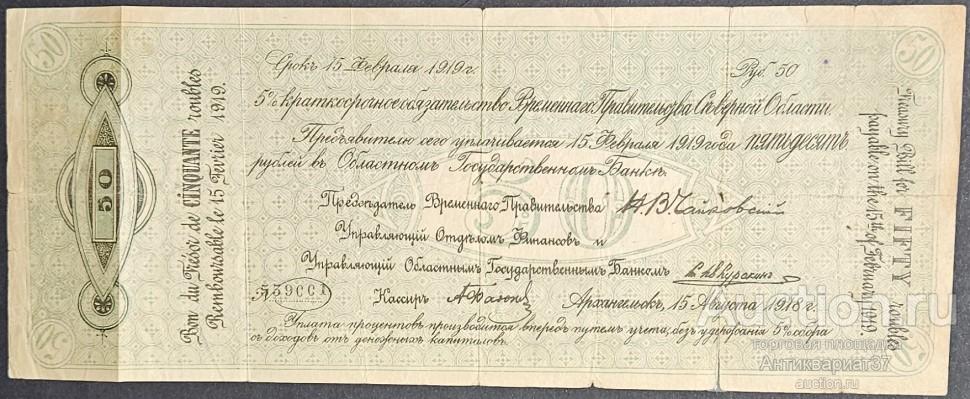 50
50
Срокъ 15 Февраля 1919 г.
Руб. 50
5% краткосрочное обязательство Временнаго Правительства Сѣверной Области.
Предъявителю сего уплачивается 15 Февраля 1919 года ПЯТЬДЕСЯТЪ
рублей въ Областномъ Государственномъ Банкѣ.
Предсѣдатель Временнаго Правительства Н.В.Чайковскій
Управляющій Отдѣломъ Финансовъ и
Управляющій Областнымъ Государственнымъ Банкомъ Кн. Ив. Куракинъ
Кассиръ
Архангельскъ, 15 Августа 1918 г.
Уплата процентовъ производится впередъ путемъ учета, безъ удержанія 5% сбора
съ доходовъ отъ денежныхъ капиталовъ.
Bon du Trésor de CINQUANTE roubles
Remboursable le 15 Fevrier 1919.
50
50
Treasury Bill for FIFTY roubles
payable on the 15th of February 1919.
50
50
Auction.ru
торговая площадка
Антиквариат37
auction.ru